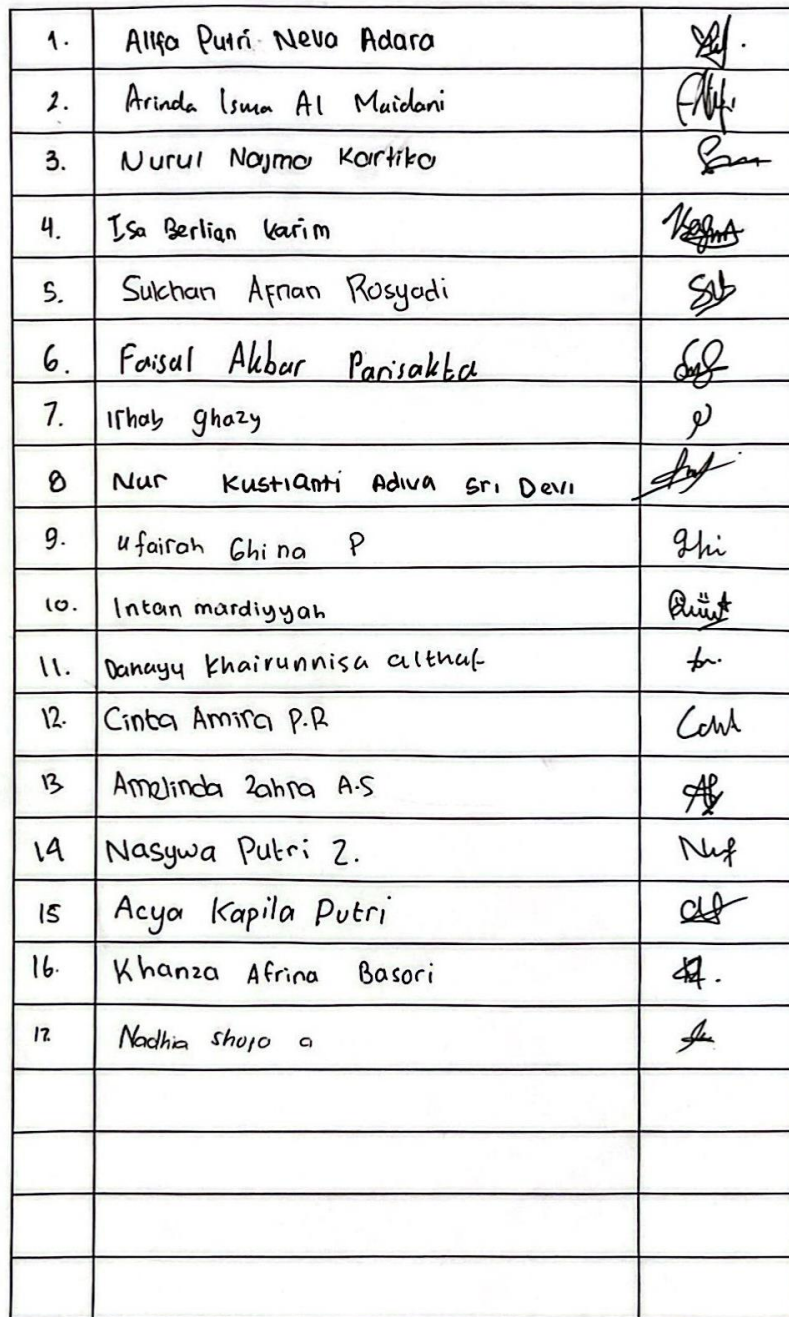 1. Alifa Putri Neva Adara
2. Arinda Isma Al Maidani
3. Nurul Najma Kartika
4. Isa Berlian Karim
5. Sulchan Afnan Rosyadi
6. Faisal Akbar Parisakta
7. Irhab ghazy
8 Nur Kustianti Adiva Sri Devi
9. Ufairah Ghina P
10. Intan mardiyyah
11. Danayu Khairunnisa althaf
12. Cinta Amira P.R
13 Amelinda Zahra A.S
14 Nasywa Putri Z.
15 Acya Kapila Putri
16. Khanza Afrina Basori
17. Nadhia a